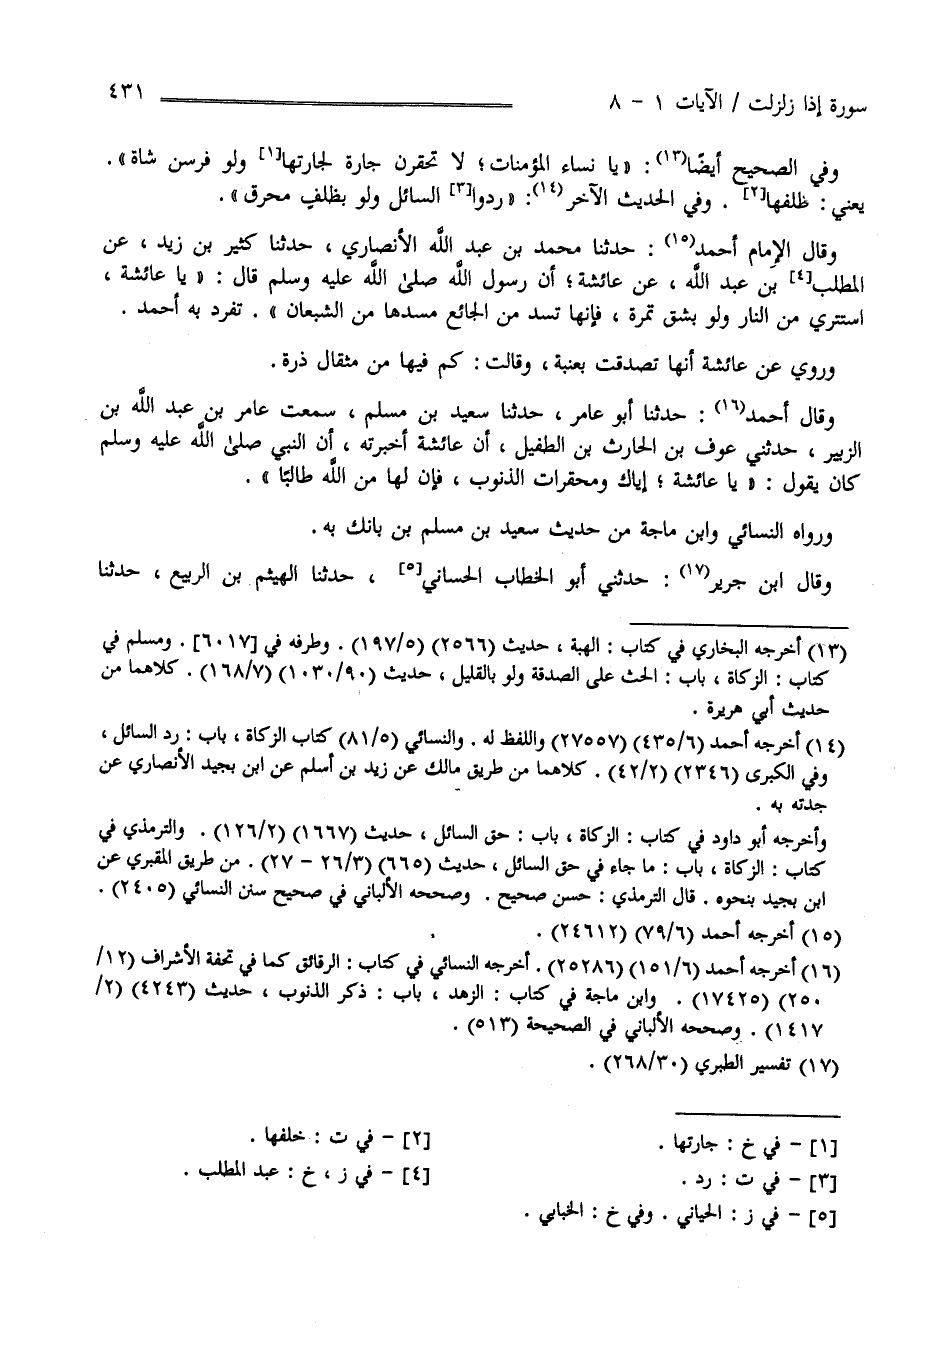 سورة إذا زلزلت / الآيات ١ - ٨ ٤٣١
وفي الصحيح أيضًا(١٣) : « يا نساء المؤمنات ؛ لا تحقرن جارة لجارتها[١] ولو فرسن شاة » .
يعني : ظلفها[٢] . وفي الحديث الآخر (١٤): « ردوا[٣] السائل ولو بظلفٍ محرق » .
وقال الإمام أحمد(١٥) : حدثنا محمد بن عبد الله الأنصاري ، حدثنا كثير بن زيد ، عن
المطلب[٤] بن عبد الله ، عن عائشة ؛ أن رسول الله صلىٰ الله عليه وسلم قال : « يا عائشة ،
استتري من النار ولو بشق تمرة ، فإنها تسد من الجائع مسدها من الشبعان » . تفرد به أحمد .
وروي عن عائشة أنها تصدقت بعنبة ، وقالت : كم فيها من مثقال ذرة .
وقال أحمد(١٦) : حدثنا أبو عامر ، حدثنا سعيد بن مسلم ، سمعت عامر بن عبد الله بن
الزبير ، حدثني عوف بن الحارث بن الطفيل ، أن عائشة أخبرته ، أن النبي صلىٰ الله عليه وسلم
كان يقول : « يا عائشة ؛ إياك ومحقرات الذنوب ، فإن لها من الله طالبًا » .
ورواه النسائي وابن ماجة من حديث سعيد بن مسلم بن بانك به .
وقال ابن جرير(١٧) : حدثني أبو الخطاب الحساني[٥] ، حدثنا الهيثم بن الربيع ، حدثنا
(١٣) أخرجه البخاري في كتاب : الهبة ، حديث (٢٥٦٦) (١٩٧/٥) . وطرفه في [٦٠١٧] . ومسلم في
كتاب : الزكاة ، باب : الحث على الصدقة ولو بالقليل ، حديث (١٠٣٠/٩٠) (١٦٨/٧) . كلاهما من
حديث أبي هريرة .
(١٤) أخرجه أحمد (٤٣٥/٦) (٢٧٥٥٧) واللفظ له . والنسائي (٨١/٥) كتاب الزكاة ، باب : رد السائل ،
وفي الكبرى (٢٣٤٦) (٤٢/٢) . كلاهما من طريق مالك عن زيد بن أسلم عن ابن بجيد الأنصاري عن
جدته به .
وأخرجه أبو داود في كتاب : الزكاة ، باب : حق السائل ، حديث (١٦٦٧) (١٢٦/٢) . والترمذي في
كتاب : الزكاة ، باب : ما جاء في حق السائل ، حديث (٦٦٥) (٢٦/٣ - ٢٧) . من طريق المقبري عن
ابن بجيد بنحوه . قال الترمذي : حسن صحيح . وصححه الألباني في صحيح سنن النسائي (٢٤٠٥) .
(١٥) أخرجه أحمد (٧٩/٦) (٢٤٦١٢) .
(١٦) أخرجه أحمد (١٥١/٦) (٢٥٢٨٦) . أخرجه النسائي في كتاب : الرقائق كما في تحفة الأشراف (١٢/
٢٥٠) (١٧٤٢٥) . وابن ماجة في كتاب : الزهد ، باب : ذكر الذنوب ، حديث (٤٢٤٣) (٢/
١٤١٧) . وصححه الألباني في الصحيحة (٥١٣) .
(١٧) تفسير الطبري (٢٦٨/٣٠) .
[١] - في خ : جارتها . [٢] - في ت : خلفها .
[٣] - في ت : رد . [٤] - في ز ، خ : عبد المطلب .
[٥] - في ز : الحياني . وفي خ : الخبابي .